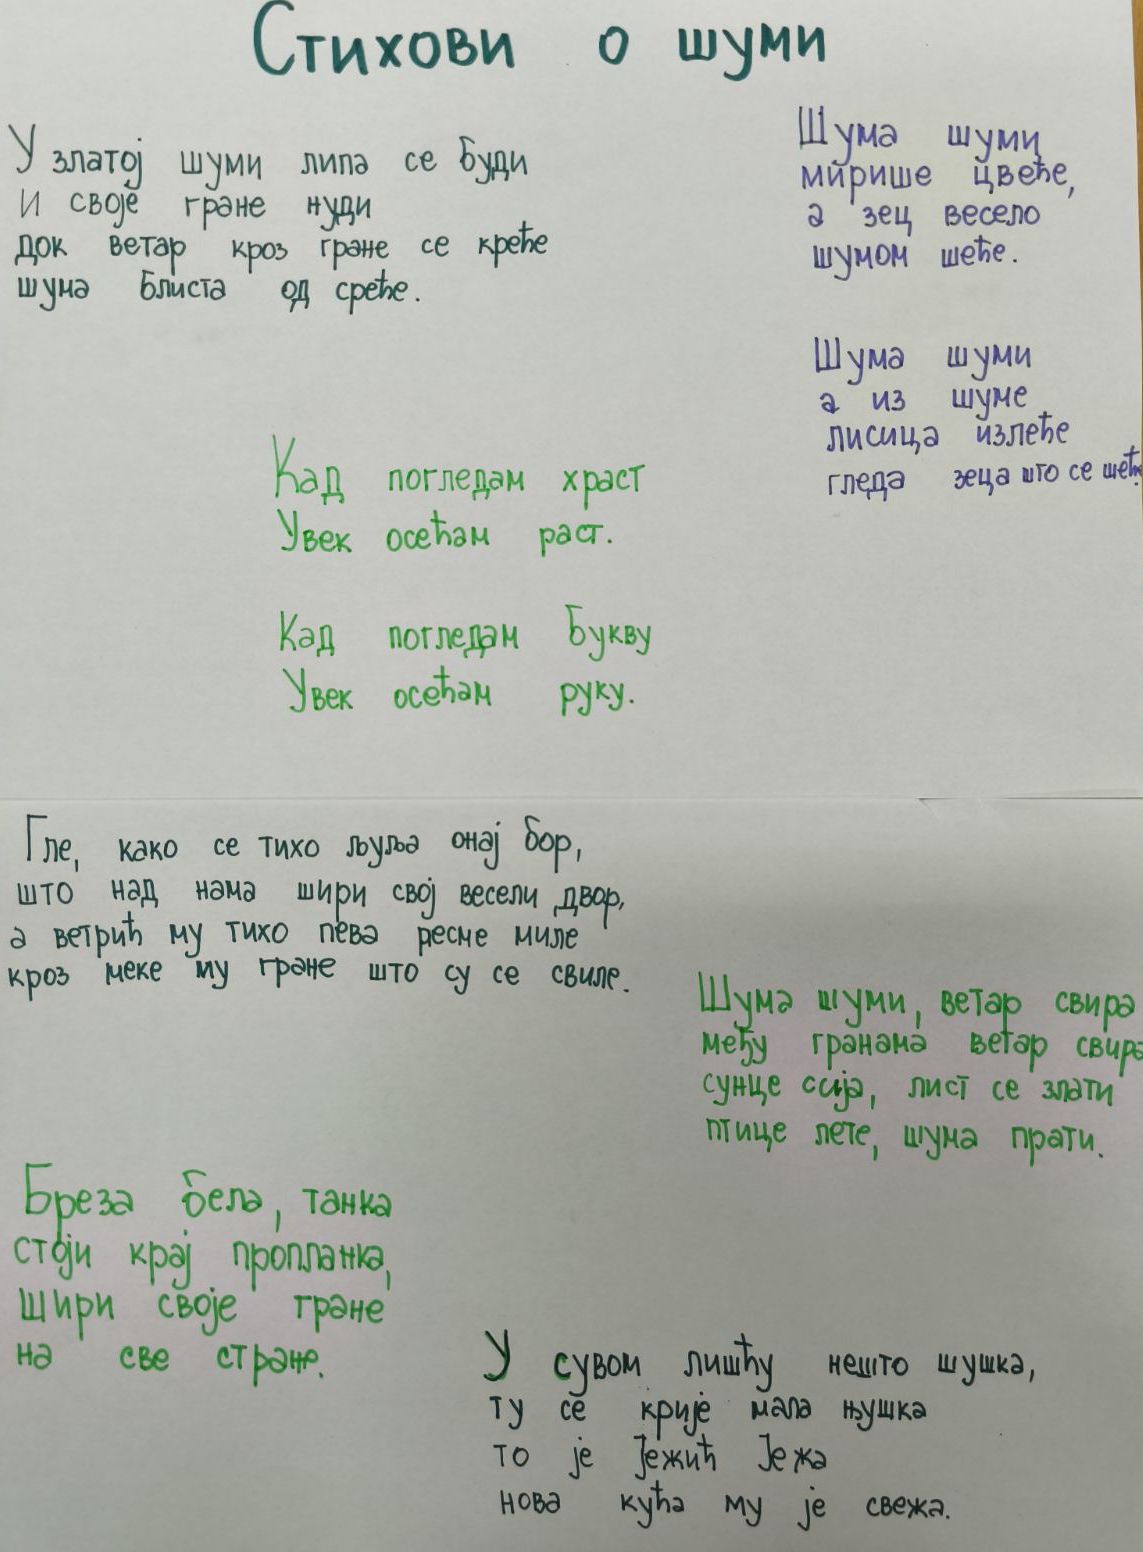 Стихови о шуми
У златој шуми липа се буди
И своје гране нуди
док ветар кроз гране се креће
шума блиста од среће.
Шума шуми
мирише цвеће,
а зец весело
шумом шеће.
Шума шуми
а из шуме
лисица излеће
гледа зеца што се шеће
Кад погледам храст
Увек осећам раст.
Кад погледам Букву
Увек осећам руку.
Гле, како се тихо љуља онај бор,
што над нама шири свој весели двор,
а ветрић му тихо пева песме миле
кроз меке му гране што су се свиле.
Шума шуми, ветар свира
међу гранама ветар свира
сунце сија, лист се злати
птице лете, шума прати.
Бреза бела, танка
стоји крај пропланка,
шири своје гране
на све стране.
У сувом лишћу нешто шушка,
ту се крије мала њушка
то је Јежић Јежа
нова кућа му је свежа.